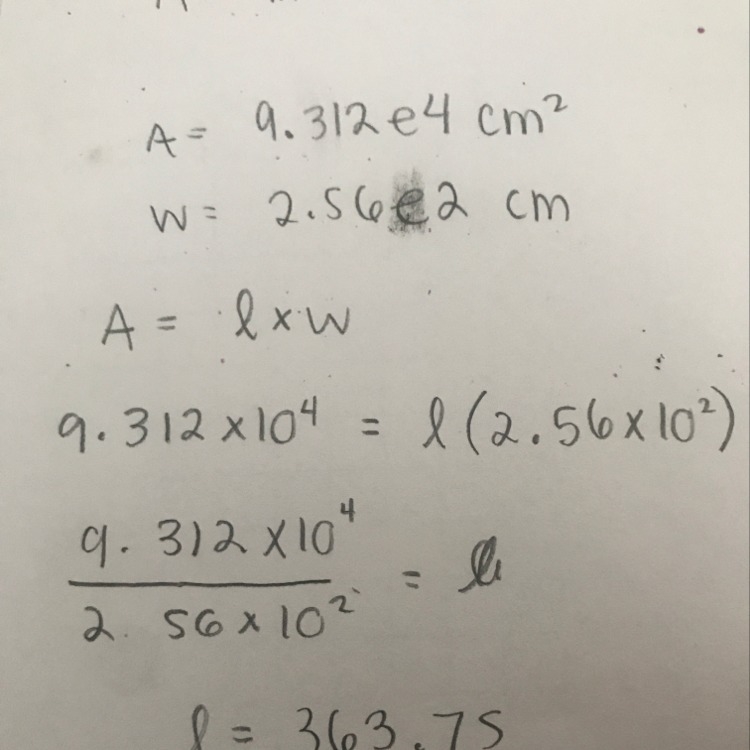 A = 9.312e4 cm²
W = 2.56e2 cm
A = l x w
9.312 x 10⁴ = l (2.56 x 10²)
9.312 x 10⁴
2.56 x 10²
= l
l = 363.75